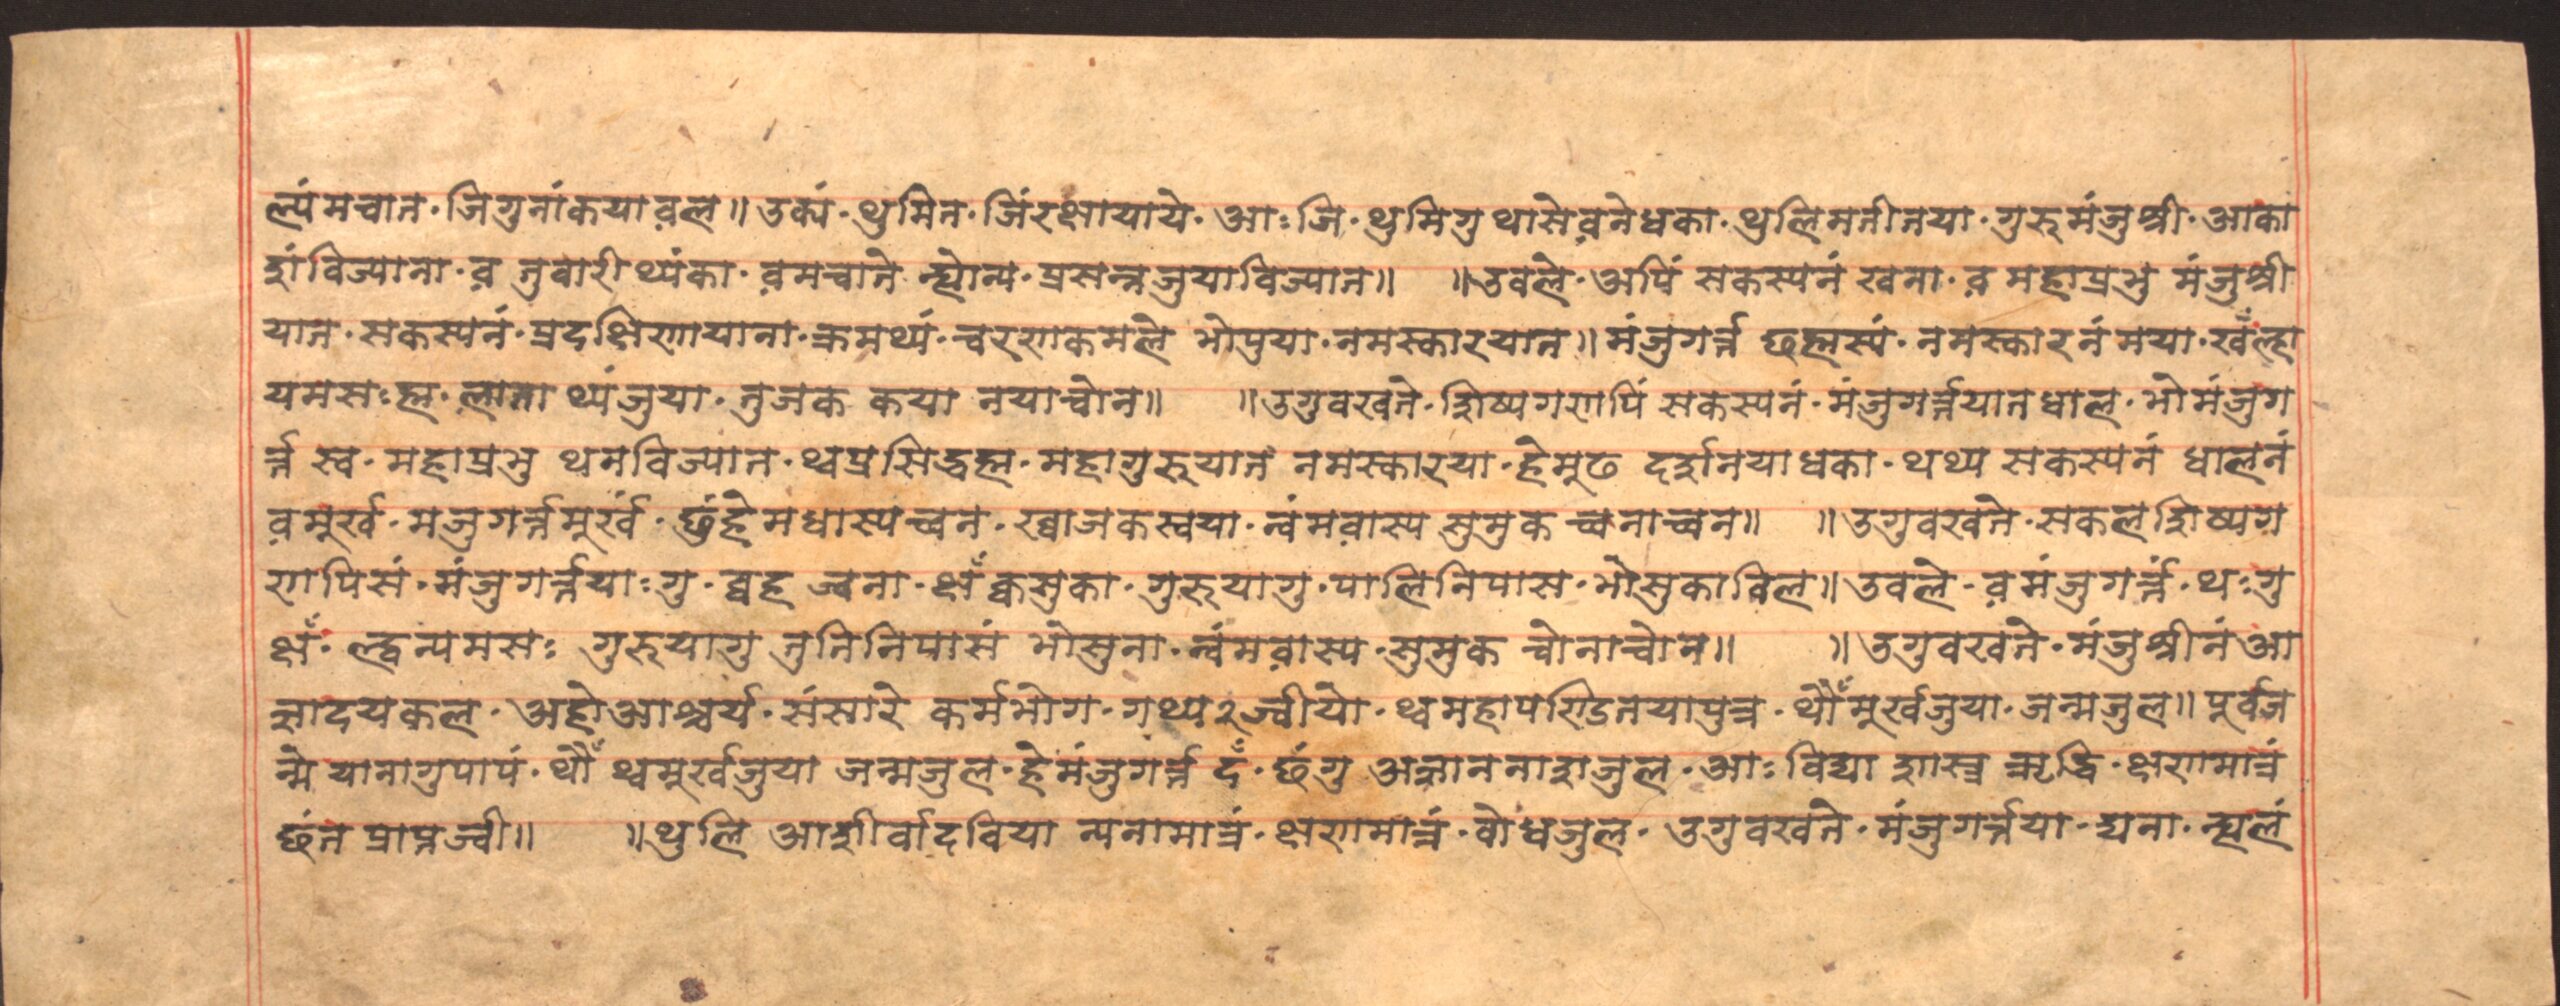 ल्यंमच्वान॰जिगुनांकयावल॥उक्यं॰थुमित॰जिंरक्षायाये॰आः जि॰थुमिगुथासेवनेधका॰थुलिमतीतया॰गुरुमंजुश्री॰आका
शंविज्याना॰व तुवारीथ्यंका॰वमच्वाते न्ह्योन्य॰प्रसन्नजुयाविज्यात॥ ॥उवले॰अपिं सकस्यनं खना॰व महाप्रभु मंजुश्री
यात॰सकस्यनं॰प्रदक्षिणायाना॰क्रमथ्यं॰चरणकमले भोपुया॰नमस्कारयात॥मंजुगर्त्त छह्मस्यं॰नमस्कारनंमया॰खँल्हा
यमसःह्म॰लाता थ्यंजुया॰तुजक कया नयाच्वोन॥ ॥उगुवखते॰शिष्यगणपिं सकस्यनं॰मंजुगर्त्तयातधाल॰भोमंजुग
र्त्त स्व॰महाप्रभु थनविज्यात॰थ्वप्रसिद्धह्म॰महागुरुयातं नमस्कारया॰हेमुढ दर्शनयाधका॰थथ्य सकस्यनं धालनं
वमुर्ख॰मजुगर्त्तमुर्खं॰छुंहेमधास्य च्वन॰ख्वाजकस्वया॰न्वंमवास्य सुमुक च्वनाच्वन॥ ॥उगुवखते॰सकलशिष्यग
णपिसं॰मंजुगर्त्तयाःगु॰ब्वह ज्वना॰छ्यँ क्वसुका॰गुरुयागु॰पालिनिपास॰भोसुकाविल॥उवले॰व मंजुगर्त्तं॰थःगु
छ्यँ॰ल्ह्वन्यमसः गुरुयागु तुतिनिपासं भोसुना॰न्वंमवास्य॰सुमुक च्वोनाच्वोन॥ ॥उगुवखते॰मंजुश्रीनंआ
ज्ञादयकल॰अहोआश्चर्य॰संसारे कर्मभोग॰गथ्य२ज्वीयो॰थ्वमहापण्डितयापुत्र॰थौँमुर्खजुया॰जन्मजुल॥पूर्वज
न्मे यानागुपापं॰थौँ थ्वमुर्खजुया जन्मजुल॰हेमंजुगर्त्त दँ॰छंगु अज्ञाननाशजुल॰आः विद्या शास्त्र ऋद्धि॰क्षणमात्रं
छंत प्राप्तज्वी॥ ॥थुलि आशीर्वादविया न्यनामात्रं॰क्षणमात्रं॰बोधजुल॰उगुवखते॰मंजुगर्त्तया॰द्यना॰न्ह्यलं